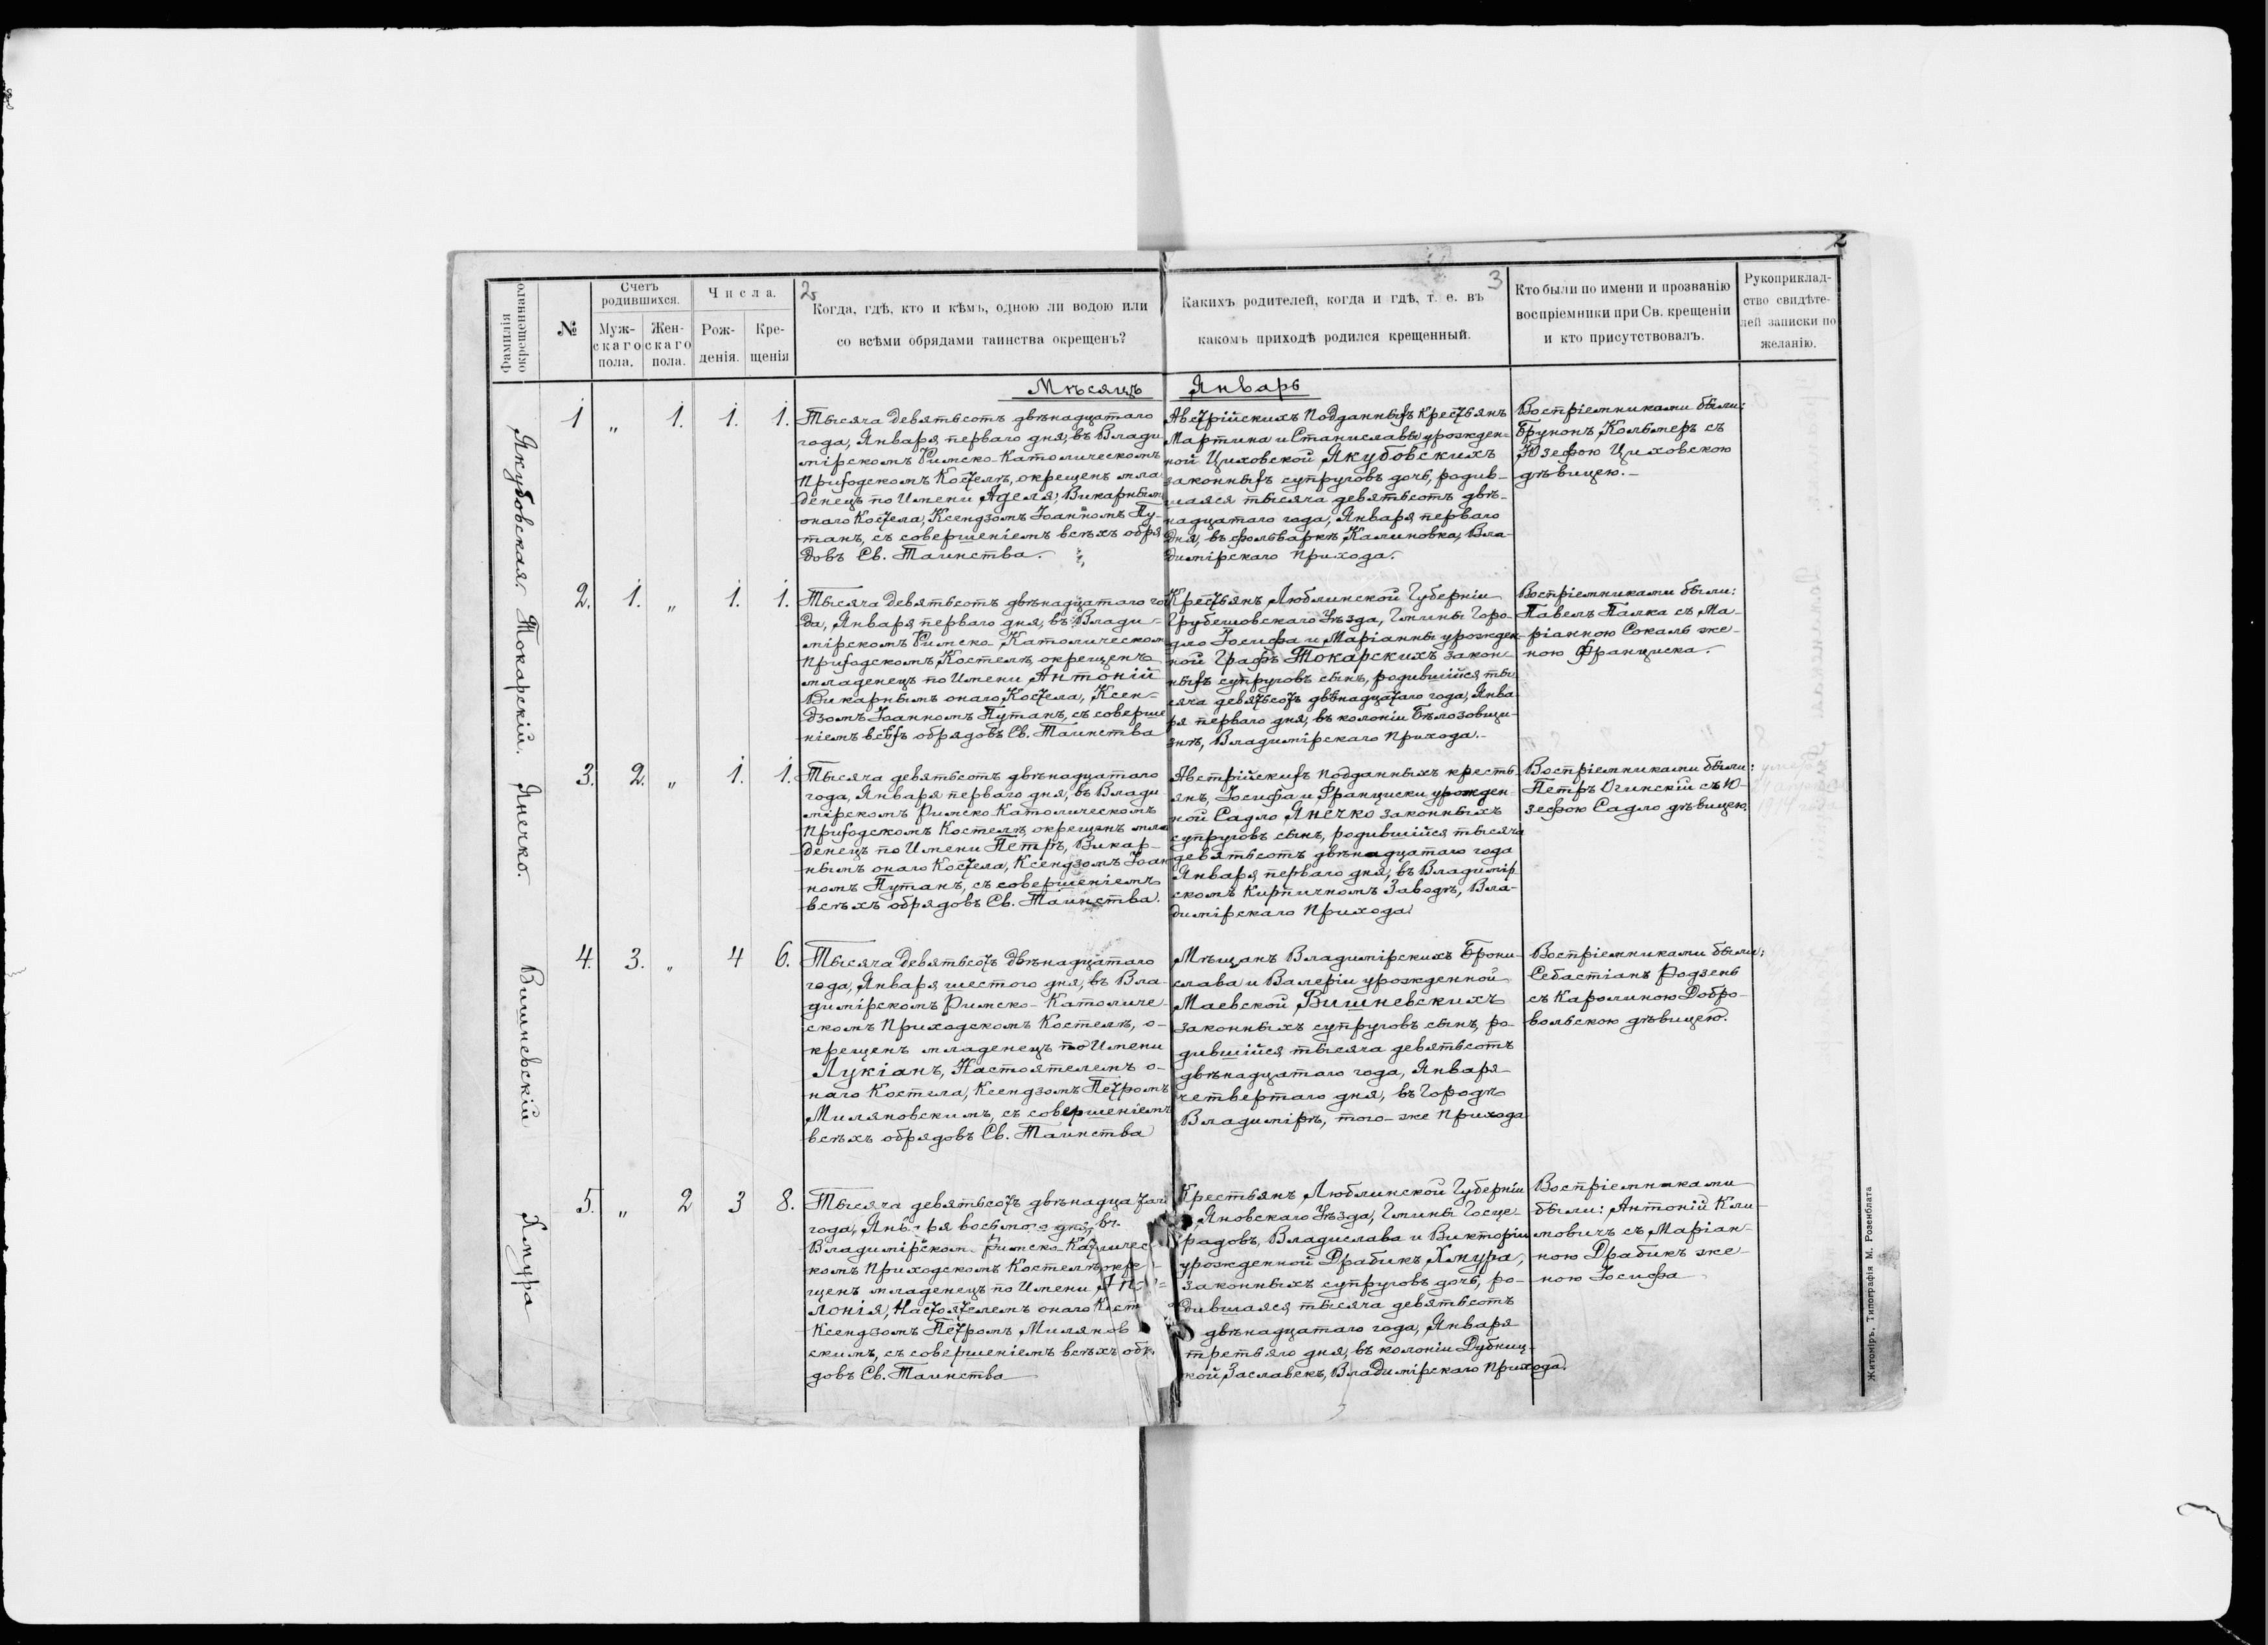 2
2.
3
Фамилія окрещеннаго
№
Счетъ родившихся.
Мужскаго пола.
Женскаго пола.
Числа.
Рожденія.
Крещенія
Когда, гдѣ, кто и кѣмъ, одною ли водою или
со всѣми обрядами таинства окрещенъ?
Какихъ родителей, когда и гдѣ, т. е. въ
какомъ приходѣ родился крещенный.
Кто были по имени и прозванію
воспріемники при Св. крещеніи
и кто присутствовалъ.
Рукоприклад-
ство свидѣте-
лей записки по
желанію.
Мѣсяцъ Январь
Якубовская.
1 „ 1. 1. 1.
Тысяча девятьсотъ двѣнадцатаго
года, Января перваго дня, въ Влади
мірскомъ Римско-Католическомъ
Приходскомъ Костелѣ, окрещенъ мла
денецъ по Имени Аделя, Викарнымъ
онаго Костела, Ксендзомъ Іоанномъ Пу-
танъ, съ совершеніемъ всѣхъ обря
довъ Св. Таинства.
Австрійскихъ Подданныхъ Крестьянъ
Мартина и Станиславы урожден-
ной Циховской Якубовскихъ
законныхъ супруговъ дочь, родив-
шаяся тысяча девятьсотъ двѣ-
надцатаго года, Января перваго
дня, въ фольваркѣ Калиновка, Вла-
димірскаго Прихода.
Воспріемниками были:
Брунонъ Кольмеръ съ
Юзефою Циховскою
дѣвицею.-
Токарскій.
2. 1. „ 1. 1.
Тысяча девятьсотъ двѣнадцатаго го
да, Января перваго дня, въ Влади-
мірскомъ Римско-Католическом
Приходскомъ Костелѣ, окрещенъ
младенецъ по Имени Антоній
Викарнымъ онаго Костела, Ксен-
дзомъ Іоанномъ Путанъ, съ соверше
ніемъ всѣхъ обрядовъ Св. Таинства
Крестьянъ Люблинской Губерніи
Грубешовскаго Уѣзда, Гмины Горо-
дло Іосифа и Маріанны урожден-
ной Графъ Токарскихъ закон-
ныхъ супруговъ сынъ, родившійся ты
сяча девятьсотъ двѣнадцатаго года, Янва
ря перваго дня, въ колоніи Бѣлозовщи-
знѣ, Владимірскаго Прихода.-
Воспріемниками были:
Павелъ Палка съ Ма-
ріанною Сокаль же-
ною Франциска.
Янечко.
3. 2. „ 1. 1.
Тысяча девятьсотъ двѣнадцатаго
года, Января перваго дня, въ Влади
мірскомъ Римско Католическомъ
Приходскомъ Костелѣ, окрещенъ мла
денецъ по Имени Петръ, Викар-
нымъ онаго Костела, Ксендзомъ Іоан
номъ Путанъ, съ совершеніемъ
всѣхъ обрядовъ Св. Таинства.
Австрійскихъ Подданныхъ кресть-
янъ, Іосифа и Франциски урожден-
ной Садло Янечко законныхъ
супруговъ сынъ, родившійся тысяча
девятьсотъ двѣнадцатаго года
Января перваго дня, въ Владимір
скомъ Кирпичномъ Заводѣ, Вла-
димірскаго Прихода.
Воспріемниками были:
Петръ Огинскій съ Ю-
зефою Садло дѣвицею.
1914
Вишневскій
4. 3. „ 4 6.
Тысяча девятьсотъ двѣнадцатаго
года, Января шестого дня, въ Вла-
димірскомъ Римско-Католиче-
скомъ Приходскомъ Костелѣ, о-
крещенъ младенецъ по Имени
Лукіанъ, Настоятелемъ о-
наго Костела, Ксендзомъ Петромъ
Миляновскимъ, съ совершеніемъ
всѣхъ обрядовъ Св. Таинства
Мѣщанъ Владимірскихъ Брони-
слава и Валеріи урожденной
Маевской Вишневскихъ
законныхъ супруговъ сынъ, ро-
дившійся тысяча девятьсотъ
двѣнадцатаго года, Января
четвертаго дня, въ Городѣ
Владимірѣ, того-же Прихода
Воспріемниками были:
Себастіанъ Родзенъ
съ Каролиною Добро-
вольскою дѣвицею.
Хмура
5. „ 2 3 8.
Тысяча девятьсотъ двѣнадцатаго
года, Января восьмого дня, въ
Владимірском Римско-Католичес
комъ Приходскомъ Костелѣ, окре-
щенъ младенецъ по Имени Апо-
лонія, Настоятелемъ онаго Кост
Ксендзомъ Петромъ Милянов
скимъ, съ совершеніемъ всѣхъ обр
довъ Св. Таинства
Крестьянъ Люблинской Губерніи
Яновскаго Уѣзда, Гмины Госце-
радовъ, Владислава и Викторіи
урожденной Драбикъ Хмура,
законныхъ супруговъ дочь, ро-
дившаяся тысяча девятьсотъ
двѣнадцатаго года, Января
третьяго дня, въ колоніи Дубниц-
кой Заславекъ, Владимірскаго Прихода.
Воспріемниками
были: Антоній Кли-
мовичъ съ Маріан-
ною Драбикъ же-
ною Іосифа
Житоміръ, Типографія М. Розенблата